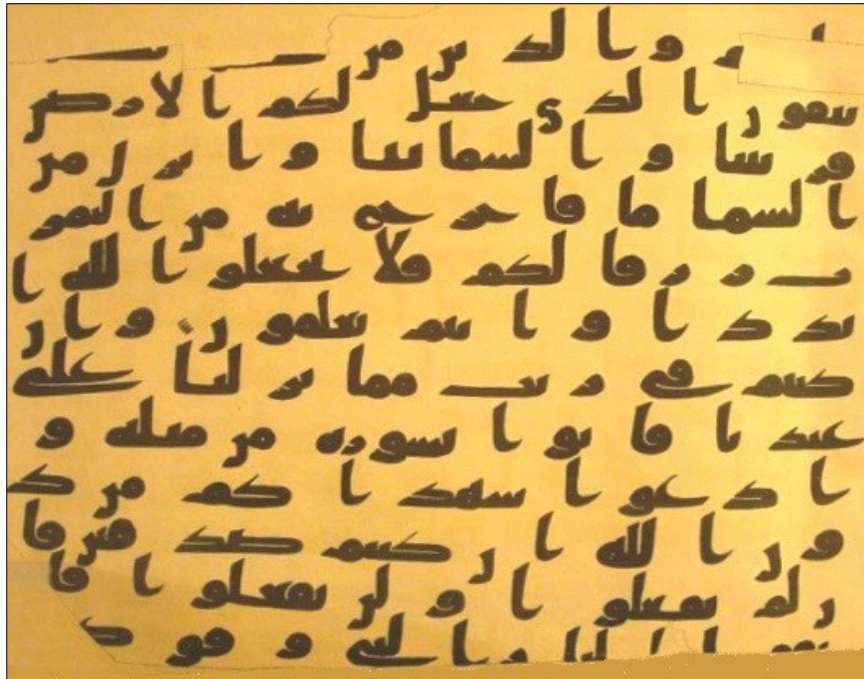 و الذين من
تتقون الذي جعل لكم الارض
فرشا و السما بنا و انزل من
السما ما فاخرج به من الثمر
ت رزقا لكم فلا تجعلوا لله ا
ندادا و انتم تعلمون و ان
كنتم في ريب مما نزلنا على
عبدنا فاتوا بسوره من مثله و
ادعوا شهداكم من د
ون الله ان كنتم صدقين فا
ن لم تفعلوا و لن تفعلوا فا
تقوا النار التي وقود